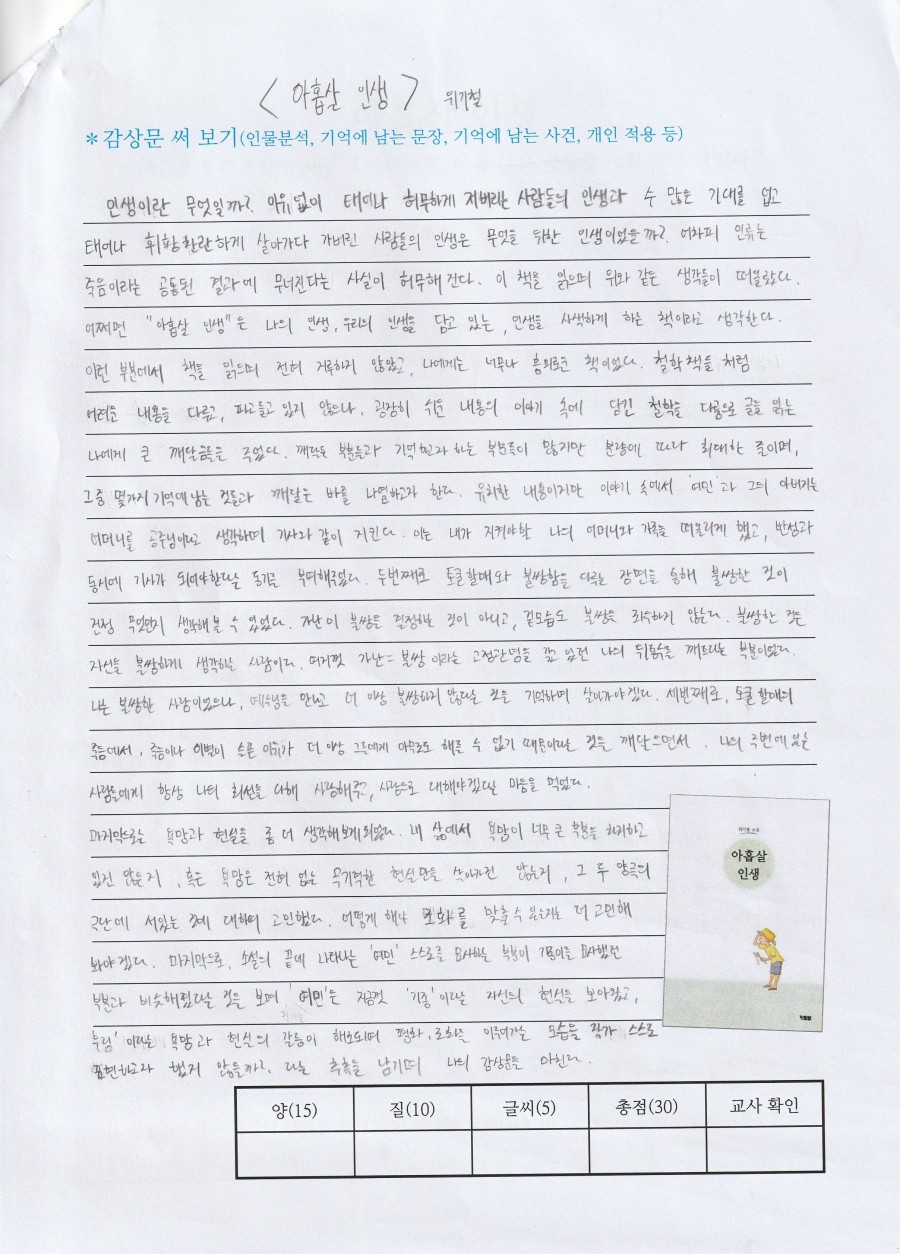 <아홉살 인생> 위기철
*감상문 써 보기(인물분석, 기억에 남는 문장, 기억에 남는 사건, 개인 적용 등)
인생이란 무엇일까? 이유없이 태어나 허무하게 져버리는 사람들의 인생과 수 많은 기대를 업고
태어나 휘황찬란하게 살아가다 가버린 사람들의 인생은 무엇을 위한 인생이었을까? 어차피 인류는
죽음이라는 공통된 결과에 무너진다는 사실이 허무해진다. 이 책을 읽으며 위와 같은 생각들이 떠올랐다.
어쩌면 "아홉살 인생"은 나의 인생, 우리의 인생을 담고 있는, 인생을 사색하게 하는 책이라고 생각한다.
이런 부분에서 책을 읽으며 전혀 지루하지 않았고, 나에게는 너무나 흥미로운 책이었다. 철학책들 처럼
어려운 내용을 다루고, 파고들고 있지 않으나, 굉장히 쉬운 내용의 이야기 속에 담긴 철학을 다룸으로 글을 읽는
나에게 큰 깨달음들을 주었다. 깨닫는 부분들과 기억하고자 하는 부분들이 많지만 분량에 따라 최대한 줄이며,
그중 몇가지 기억에 남는 것들과 깨달은 바를 나열하고자 한다. 유치한 내용이지만 이야기 속에서 '여민'과 그의 아버지는
어머니를 공주님이라고 생각하며 기사와 같이 지킨다. 이는 내가 지켜야할 나의 어머니와 가족을 떠올리게 했고, 반성과
동시에 기사가 되어야한다는 동기를 부여해주었다. 두번째로 토굴할매와 불쌍함을 다루는 장면을 통해 불쌍한 것이
진정 무엇인지 생각해 볼 수 있었다. 가난이 불쌍을 결정하는 것이 아니고, 겉모습도 불쌍을 좌우하지 않는다. 불쌍한 것은
자신을 불쌍하게 생각하는 사람이다. 여지껏 가난=불쌍 이라는 고정관념을 갖고 있던 나의 뒤통수를 깨트리는 부분이었다.
나는 불쌍한 사람이었으나, 예수님을 만나고 더 이상 불쌍하지 않다는 것을 기억하며 살아가야겠다. 세번째로, 토굴할매의
죽음에서, 죽음이나 이별이 슬픈 이유가 더 이상 그들에게 아무것도 해줄 수 없기 때문이라는 것을 깨달으면서, 나의 주변에 있는
사람들에게 항상 나의 최선을 다해 사랑해주고, 사랑으로 대해야겠다는 마음을 먹었다.
마지막으로는 욕망과 현실을 좀 더 생각해보게되었다. 내 삶에서 욕망이 너무 큰 부분을 차지하고
있진 않는지, 혹은 욕망은 전혀 없는 극기적한 현실만을 살아가진 않는지, 그 두 양극의
극단에 서있는 것에 대하여 고민했다. 어떻게 해야 조화를 맞출 수 있는지는 더 고민해
봐야겠다. 마지막으로, 소설의 끝에 나타나는 '여민' 스스로를 묘사하는 부분이 기종이를 묘사했던
부분과 비슷해졌다는 것을 보며 '여민'은 지금껏 '기종'이라는 자신의 현실을 보아왔고,
우림'이라는 욕망과 현실의 갈등이 해소되며 평화, 조화를 이루어가는 모습을 작가 스스로
표현하고자 했지 않을까? 라는 추측을 남기며 나의 감상문을 마친다.
위기철 소설
아홉살
인생
청년사
양(15) 질(10) 글씨(5) 총점(30) 교사 확인